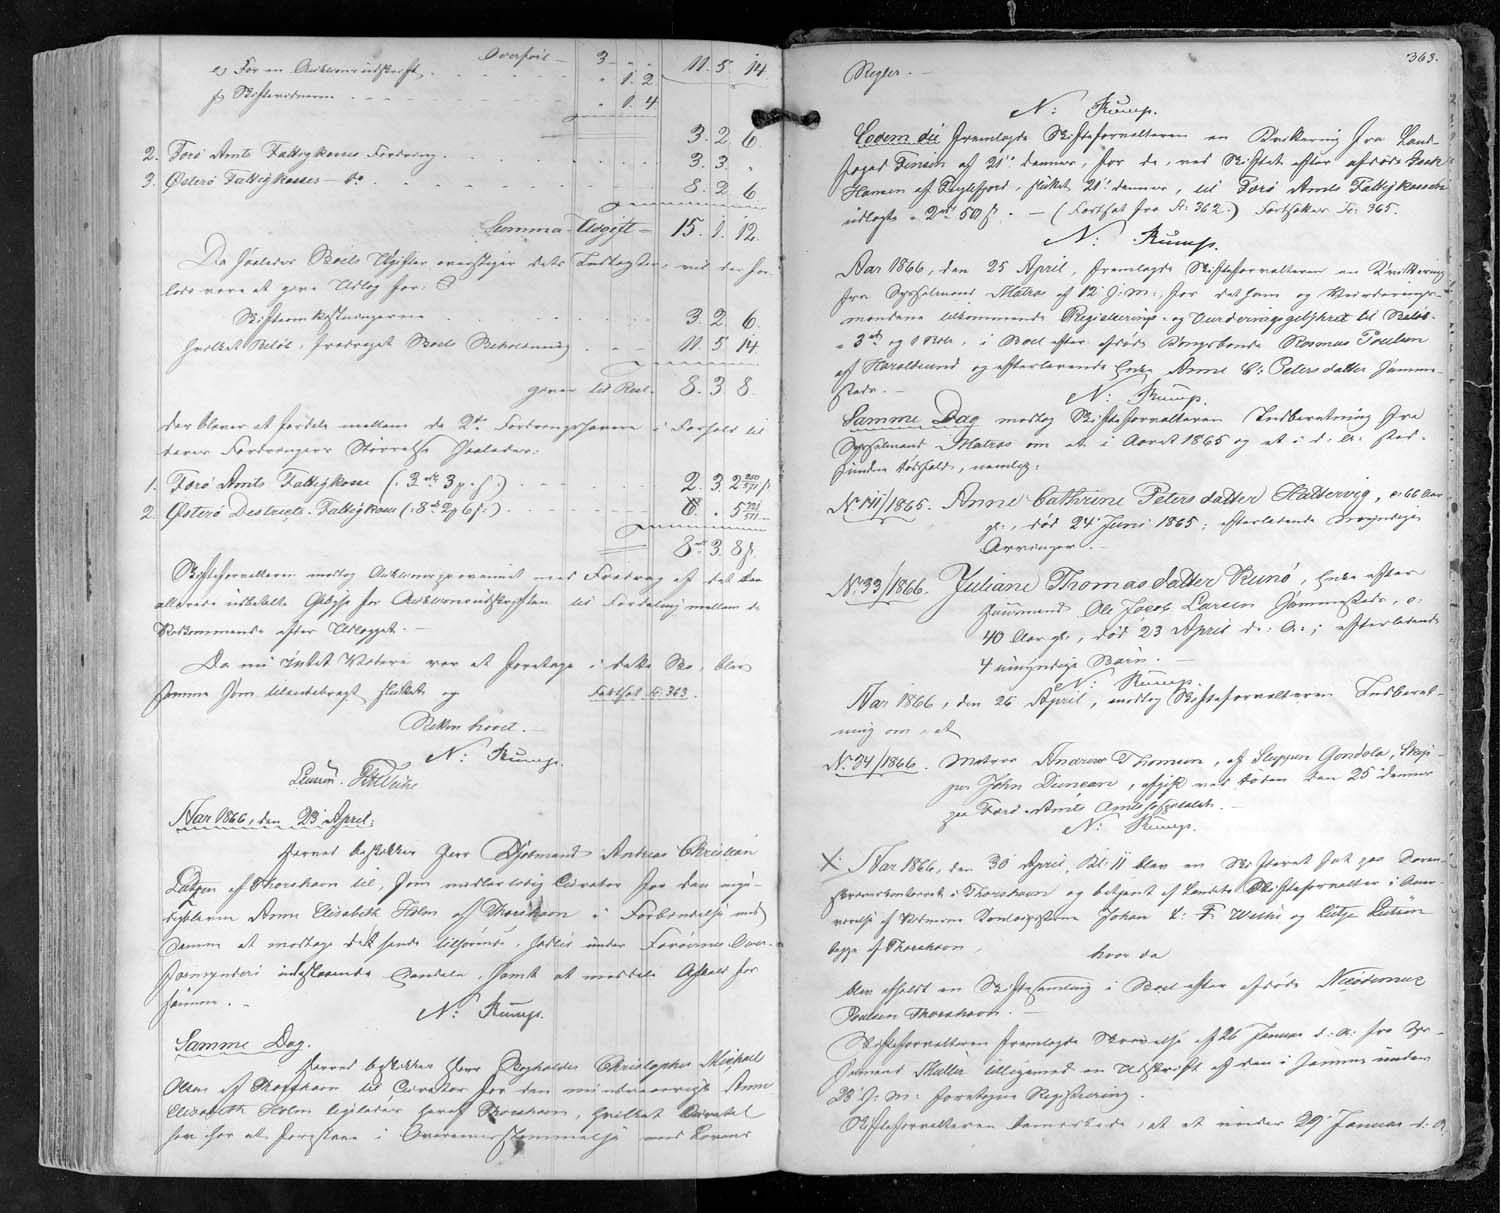 Overført — 3 „ „ 11. 5. 14
e) For en Auktionsudskrift „ 1. 2
f) Skifteviderne „ 1. 4
3. 2. 6.
2. Færø Amts Fattigkasses Fordring 3. 3. „
3. Østerø Fattigkasses — do 8. 2. 6
Summa Udgift — 15. 1. 12.
Da saaledes Boets Udgifter overstiger dets Indtægter, vil der for-
lods være at gjøre Udlæg for:
Skifteomkostningerne 3. 2. 6.
hvilket Beløb, fradraget Boets Beholdning 11. 5. 14
giver til Rest 8. 3. 8
der bliver at fordele mellem de 2de Fordringshavere i Forhold til
deres Fordringers Størrelse saaledes:
1. Færø Amts Fattigkasse (: 3 rd 3 „ :) 2. 3. 2
2. Østerø Destricts Fattigkasse (: 8 rd 2 6 :) „ 5
8 rd 3. 8
Skifteforvalteren modtog Auktionsprovenuet med Fradrag af det
allerede udbetalte Gebyr for Auktionsudskriften til Fordeling mellem de
Vedkommende efter Udlægget. —
Da nu Intet Videre var at foretage i dette Bo, blev
samme som tilendebragt sluttet og Fortsat Fr: 363.
Retten hævet. —
N: Rump.
Lützen. Wethe
Aar 1866, den 23 April,
herved beskikkes Herr Kjøbmand Andreas Christian
Lützen af Thorshavn til, som midlertidig Curator for den umyn-
dige Anne Elisabeth Holm af Thorshavn i Forbindelse med
Samme at modtage det hende tilfaldne, hidtil under Færøernes Over-
formynderi indestaaende Capital, samt at meddele Afkald for
samme. —
N: Rump.
Samme Dag.
herved beskikkes Herr Bogholder Christopher Michael
Olsen af Thorshavn til Curator for den mindreaarige Anne
Elisabeth Holm ligeledes her af Thorshavn, hvilket Curatel
han har at forestaae i Overensstemmelse med Lovens
363.
Regler. —
N: Rump.
Eodem die fremlagde Skifteforvalteren en Kvittering fra Land-
foged Finsen af 21de dennes, for de, ved Skiftet efter afdøde Isak
Hansen af Fuglefjord, sluttet 21de dennes, til Færø Amts Fattigkasse
udlagte 2 rd 50 ß. — (Fortsat fra Fr: 362.) Fortsættes Fr: 365.
N: Rump.
Aar 1866, den 25 April, fremlagde Skifteforvalteren en Kvittering
fra Sysselmand Matras af 12 d: M:, for det ham og Vurderings-
mændene tilkommende Registrerings- og Vurderingsgebyhret til Beløb
3 rd og 1 , i Boet efter afdøde Kongsbonde Rasmus Poulsen
af Haraldsund og efterlevende Enke Anne C: Petersdatter samme-
steds. —
N: Rump.
Samme Dag modtog Skifteforvalteren Indberetning fra
Sysselmand Matras om at i Aaret 1865 og at i d. A. sted-
fundne Dødsfald, nemlig:
No 141/1865. Anne Cathrine Petersdatter Hattervig, c: 66 Aar
gl:, død 24 Juni 1865; efterladende myndige
Arvinger. —
No 33/1866. Juliane Thomasdatter Kunø, Enke efter
Huusmand Ole Jacob Larsen sammesteds, c:
40 Aar gl:, død 23 April d: A:; efterladende
4 umyndige Børn. —
N: Rump.
Aar 1866, den 26 April, modtog Skifteforvalteren Indberet-
ning om, at
No 34/1866. Matros Andrew Thomson, af Sluppen Gondola, Skip-
per John Duncan, afgik ved Døden den 25 dennes
paa Færø Amts Amtshospital. —
N: Rump.
X: Aar 1866, den 30 April, Kl: 11 blev en Skifteret sat paa Soren-
skriverkontoret i Thorshavn og betjent af Landets Skifteforvalter i Over-
værelse af Vidnerne Johan C: F: Wethe og Lütje Lützen
begge af Thorshavn,
hvor da
blev afholdt en Skiftesamling i Boet efter afdøde Nicodemus
Poulsen Thorshavn. —
Skifteforvalteren fremlagde Skrivelse af 26 Januar d: A: fra Sys-
selmand Müller tilligemed en Udskrift af den i Samme under
23 d: M: foretagne Registrering.
Skifteforvalteren bemærkede, at at under 29 Januar d: A.